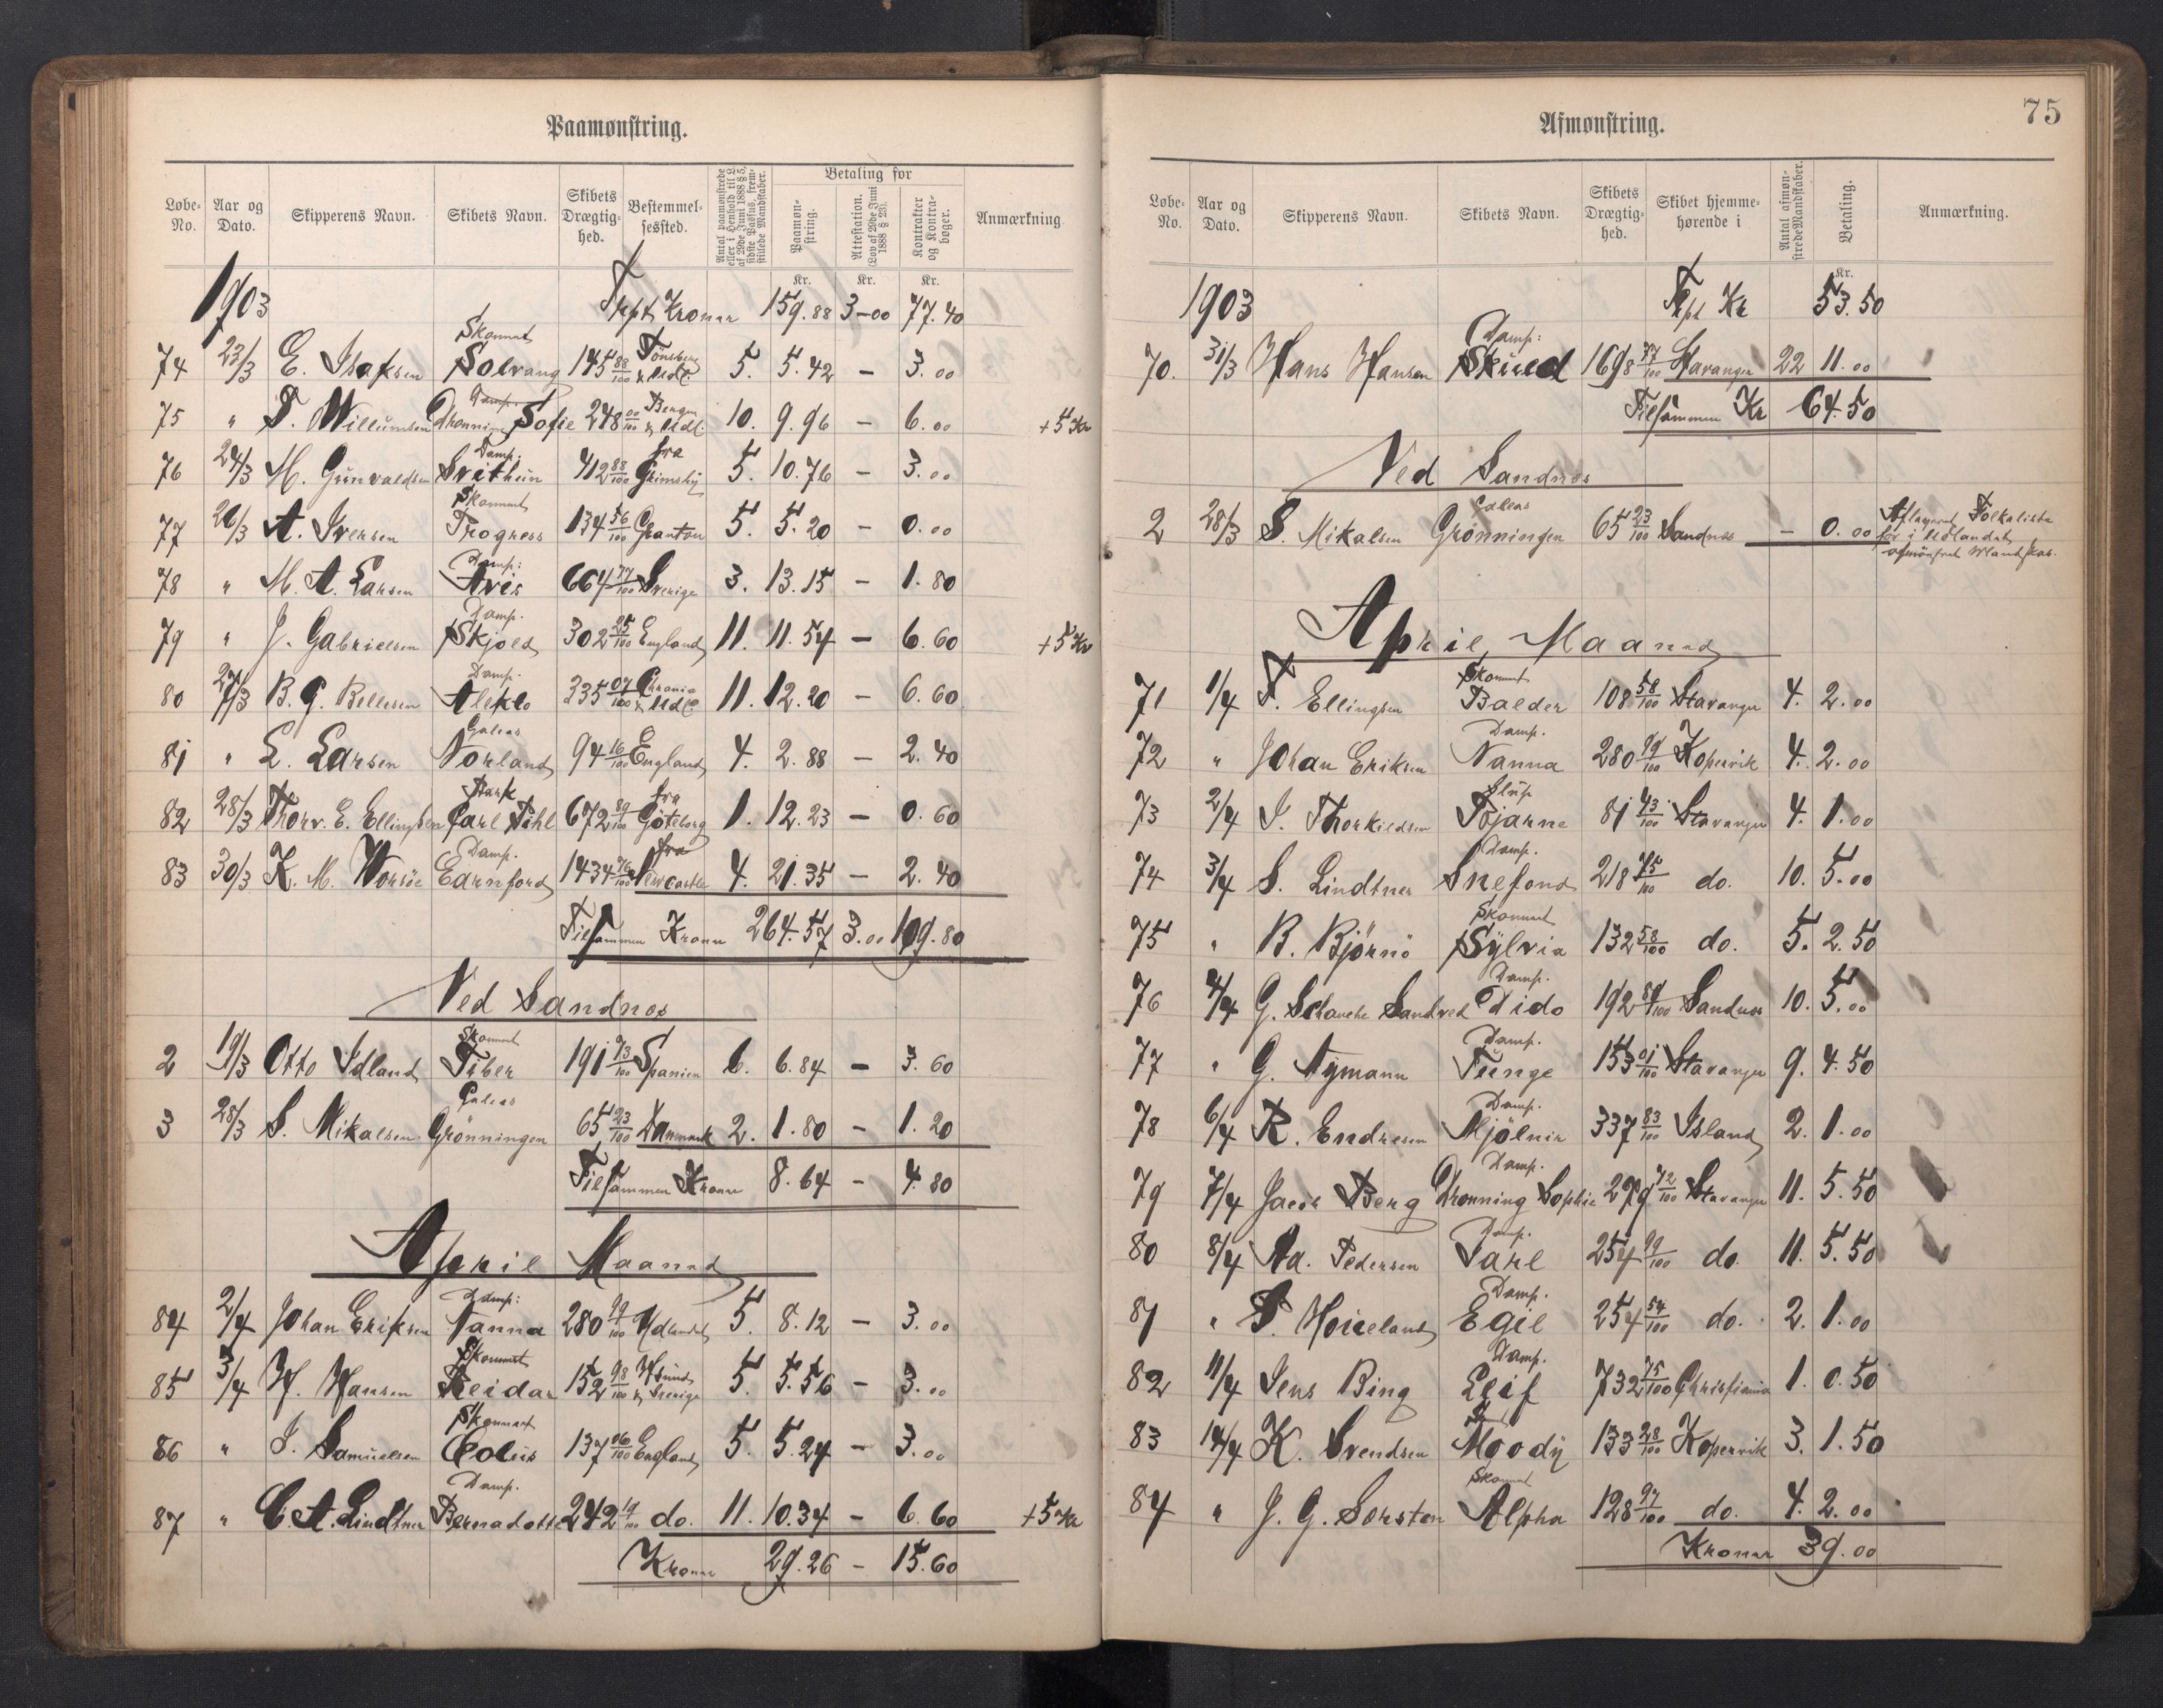 Paamønstring.
Løbe-No. | Aar og Dato. | Skipperens Navn. | Skibets Navn. | Skibets Drægtighed. | Bestemmelsessted. | Antal paamønstrede eller i Henhold til L. af 29de Juni 1888 § 5, sidste Passus, fremstillede Mandskaber. | Betaling for Paamønstring. | Attestation. (Lov af 29de Juni 1888 § 23). | Kontrakter og Kontrabøger. | Anmærkning
Kr. Kr. Kr.
1903 Trpt Kroner 159.88 3-00 77.40
74 23/3 E. Isaksen Skonnert Solvang 145 88/100 Tönsberg & Udl. 5. 5.42 – 3.00
75 " T. Willumsen Damp. Dronning Sofie 248 00/100 Bergen & Udl. 10. 9.96 – 6.00 +5 Kr
76 24/3 M. Grünvaldsen Damp. Svithun 412 88/100 fra Grimsby 5. 10.76 – 3.00
77 26/3 A. Iversen Skonnert Progress 134 56/100 Granton 5. 5.20 – 0.00
78 " M. A. Larsen Damp: Avis 664 77/100 Sverige 3. 13.15 – 1.80
79 " J. Gabrielsen Damp. Skjold 302 25/100 England 11. 11.54 – 6.60 +5 Kr
80 27/3 B. G. Bellesen Damp. Alekto 335 07/100 Chrania & Udl. 11. 12.20 – 6.60
81 " L. Larsen Galeas Norland 94 16/100 England 4. 2.88 – 2.40
82 28/3 Thorv. E. Ellingsen Bark Carl Pihl 672 89/100 fra Göteborg 1. 12.23 – 0.60
83 30/3 K. M. Worsöe Damp. Earnford 1434 76/100 fra Newcastle 4. 21.35 – 2.40
Tilsammen Kroner 264.57 3.00 109.80
Ved Sandnes
2 19/3 Otto Idland Skonnert Tiber 191 73/100 Spanien 6. 6.84 – 3.60
3 28/3 S. Mikalsen Galeas Grönningen 65 23/100 Danmark 2. 1.80 – 1.20
Tilsammen Kroner 8.64 – 4.80
April Maaned
84 2/4 Johan Eriksen Damp: Nanna 280 99/100 Udlandet 5. 8.12 – 3.00
85 3/4 H. Hansen Skonnert Reidar 152 98/100 Hsund & Sverige 5. 5.56 – 3.00
86 " I. Samuelsen Skonnert Eolus 137 06/100 England 5. 5.24 – 3.00
87 " C. A. Lindtner Damp. Bernadotte 242 19/100 do. 11. 10.34 – 6.60 +5 Kr
Kroner 29.26 – 15.60
Afmønstring.
75
Løbe-No. | Aar og Dato. | Skipperens Navn. | Skibets Navn. | Skibets Drægtighed. | Skibet hjemmehørende i | Antal afmønstrede Mandskaber. | Betaling. | Anmærkning.
Kr.
1903 Trpt Kr 53.50
70. 31/3 Hans Hansen Damp: Skuld 1698 77/100 Stavanger 22 11.00
Tilsammen Kr 64.50
Ved Sandnes
2 28/3 S. Mikalsen Galeas Grönningen 65 23/100 Sandnes – 0.00 Aflagret Folkeliste
for i Udlandet
afmönstret Mandskab.
April Maaned
71 1/4 T. Ellingsen Skonnert Balder 108 58/100 Stavanger 4. 2.00
72 " Johan Eriksen Damp. Nanna 280 99/100 Kopervik 4. 2.00
73 2/4 I. Thorkildsen Slup Bjarne 81 43/100 Stavanger 4. 1.00
74 3/4 S. Lindtner Damp. Snefond 218 75/100 do. 10. 5.00
75 " B. Björnö Skonnert Sylvia 132 58/100 do. 5. 2.50
76 4/4 G. Schanche Sandved Damp. Dido 192 89/100 Sandnes 10. 5.00
77 " G. Nymann Damp. Tunge 153 01/100 Stavanger 9. 4.50
78 6/4 R. Endresen Damp. Mjölnir 337 83/100 Island 2. 1.00
79 7/4 Jacob Berg Damp. Dronning Sophie 279 72/100 Stavanger 11. 5.50
80 8/4 Ad. Pedersen Damp. Jarl 254 99/100 do. 11. 5.50
81 " T. Hoieland Damp. Egil 254 54/100 do. 2. 1.00
82 11/4 Jens Bing Damp. Leif 732 75/100 Christiania 1. 0.50
83 14/4 K. Svendsen Moody 133 28/100 Kopervik 3. 1.50
84 " J. G. Sorsten Skonnert Alpha 128 97/100 do. 4. 2.00
Kroner 39.00